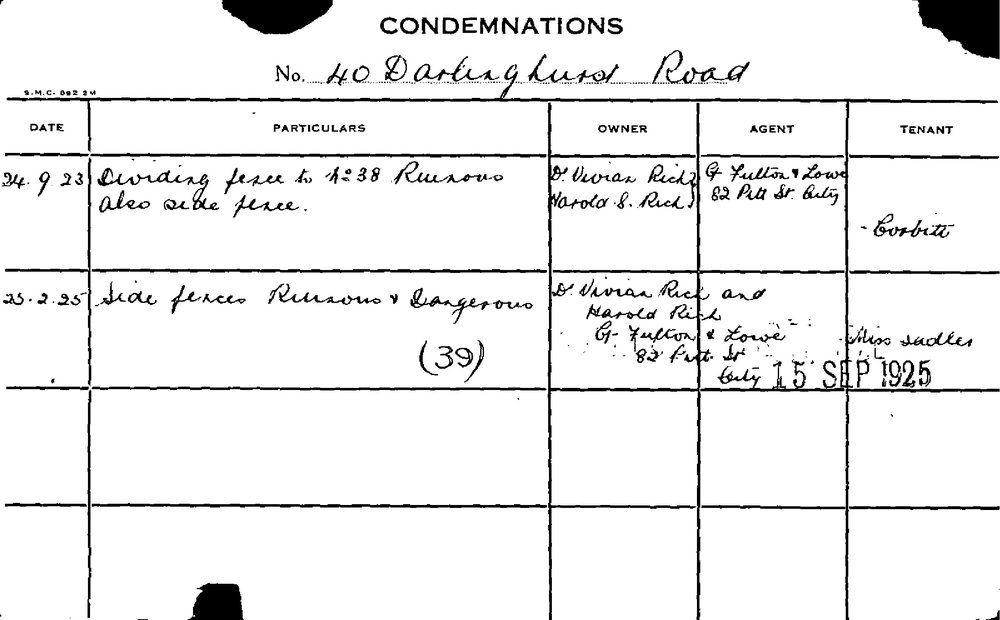 CONDEMNATIONS
No. 40 Darlinghurst Road
S.M.C. 092 2M
DATE PARTICULARS OWNER AGENT TENANT
24.9.23 Dividing fence to No 38 Ruinous Dr Vivian Rich & G Fulton & Lowe
also side fence. Harold S. Rich 82 Pitt St. City
- Corbitt
25.2.25 Side fences Ruinous & Dangerous Dr Vivian Rich and
Harold Rich
G Fulton & Lowe Miss Sadler
(39) 82 Pitt St
City 15 SEP 1925